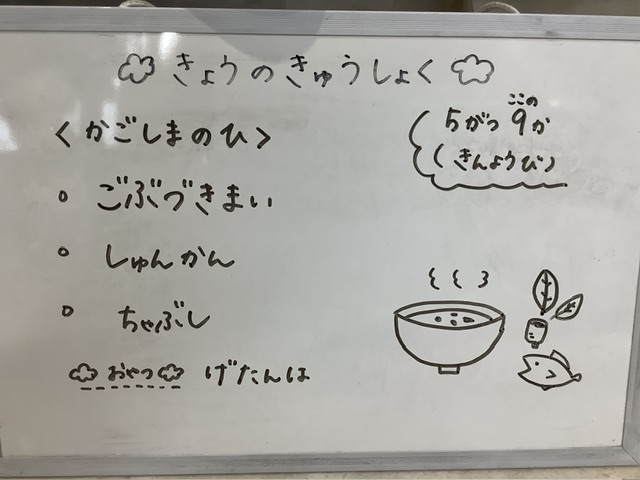 きょうのきゅうしょく
<かごしまのひ>
5がつ 9か
ここの
(きんようび)
。ごぶづきまい
。しゅんかん
。ちゃぶし
おやつ げたんは